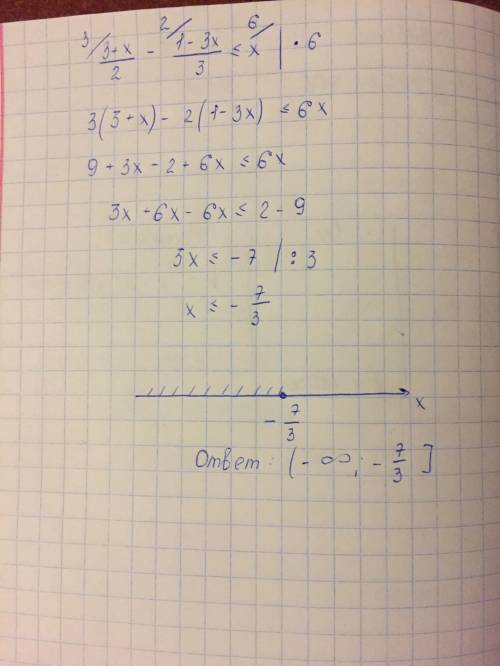 3/ 3+x/2 - 2/ 1-3x/3 ≤ 6/ x | · 6
3(3+x) - 2(1-3x) ≤ 6x
9 + 3x - 2 + 6x ≤ 6x
3x + 6x - 6x ≤ 2 - 9
3x ≤ -7 | : 3
x ≤ - 7/3
x
- 7/3
Ответ: (-∞; - 7/3]